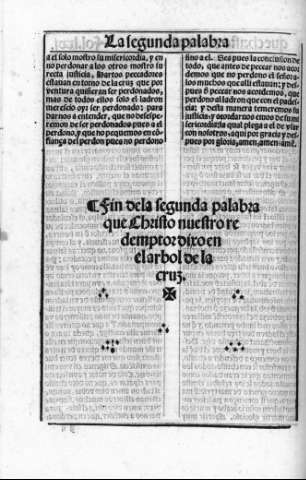 La segunda palabra
a el solo mostro su misericordia, y en
no perdonar a los otros mostro su
recta justicia. Hartos peccadores
estauan en torno de la cruz que por
ventura quisieran ser perdonados,
mas de todos ellos solo el ladron
merescio oy ser perdonado: para
darnos a entender, que no desespe
remos de ser perdonados pues a el
perdono, y que no pequemos en cō
fiança del perdon pues no perdono
sino a el. Sea pues la conclusion de
todo, que antes de peccar nos acor
demos que no perdono el señor a
los muchos que alli estauan: y des
pues de peccar nos acordemos, que
perdono al ladron que con el padecia:
y desta manera temeremos su
justicia y acordar nos emos de su mi
sericordia la qual plega a el de vsar
con nosotros: aqui por gracia y des
pues por gloria, amen, amen:
¶ Fin dela segunda palabra
que Christo nuestro re
demptor dixo en
el arbol de la
cruz.